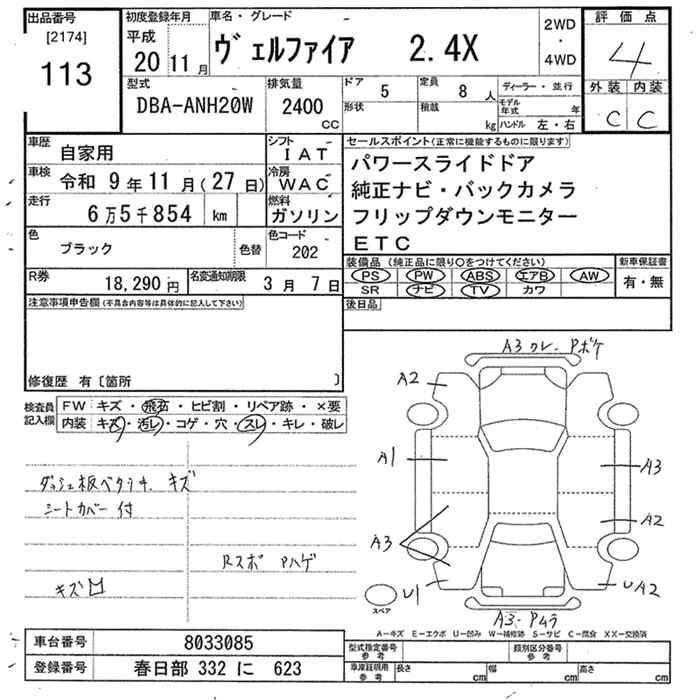 出品番号 初度登録年月 車名・グレード 評価点
[2174] 平成 2WD
113 20 11月 ヴェルファイア 2.4X ・ 4
4WD
型式 排気量 ドア 5 定員 8人 ディーラー・並行 外装 内装
DBA-ANH20W 2400 形状 積載 モデル年式 年 C C
CC kg ハンドル 左・右
車歴 自家用 シフト IAT セールスポイント(正常に機能するものに限ります)
車検 令和 9年11月(27日) 冷房 WAC パワースライドドア
走行 6万5千854 km 燃料 ガソリン 純正ナビ・バックカメラ
フリップダウンモニター
色 ブラック 色替 色コード 202 ETC
装備品(純正品に限り○をつけてください) 新車保証書
R券 18,290円 名変通知期限 3月7日 PS PW ABS エアB AW 有・無
SR ナビ TV カワ
注意事項申告欄(不具合内容等は具体的に記入して下さい) 後日品
修復歴 有〔箇所 〕
検査員 FW キズ・飛石・ヒビ割・リペア跡・×要
記入欄 内装 キズ・汚レ・コゲ・穴・スレ・キレ・破レ
A3 ワレ. Pボケ
A2
A1 A3
ダッシュ板ベタツキ、キズ
シートカバー付
A2
A3
Rスポ Pハゲ
キズ
U1 UA2
スペア
A3. Pムラ
A-キズ E-エクボ U-凹み W-補修跡 S-サビ C-腐食 XX-交換済
車台番号 8033085 型式指定番号 参考 類別区分番号 参考
登録番号 春日部 332 に 623 車庫証明用 参考 長さ cm 幅 cm 高さ cm